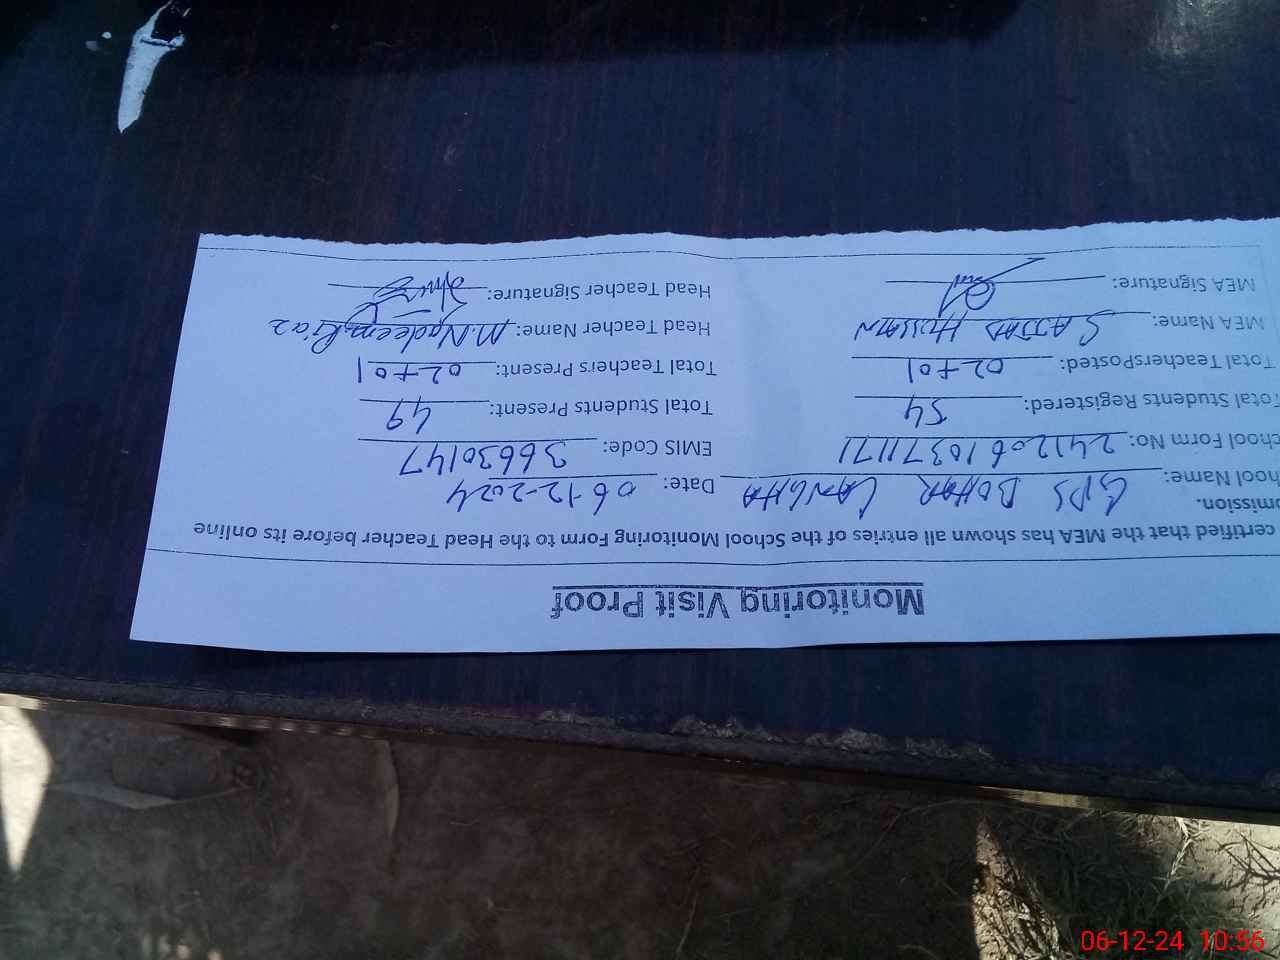 Monitoring Visit Proof
certified that the MEA has shown all entries of the School Monitoring Form to the Head Teacher before its online
mission.
hool Name: GPS BOHAR LANGHA Date: 06-12-2024
chool Form No: 24120610371171 EMIS Code: 36630147
Total Students Registered: 54 Total Students Present: 49
Total TeachersPosted: 02+01 Total Teachers Present: 02+01
MEA Name: SAJJAD HUSSAIN Head Teacher Name: M. Nadeem Riaz
MEA Signature: Head Teacher Signature:
06-12-24 10:56